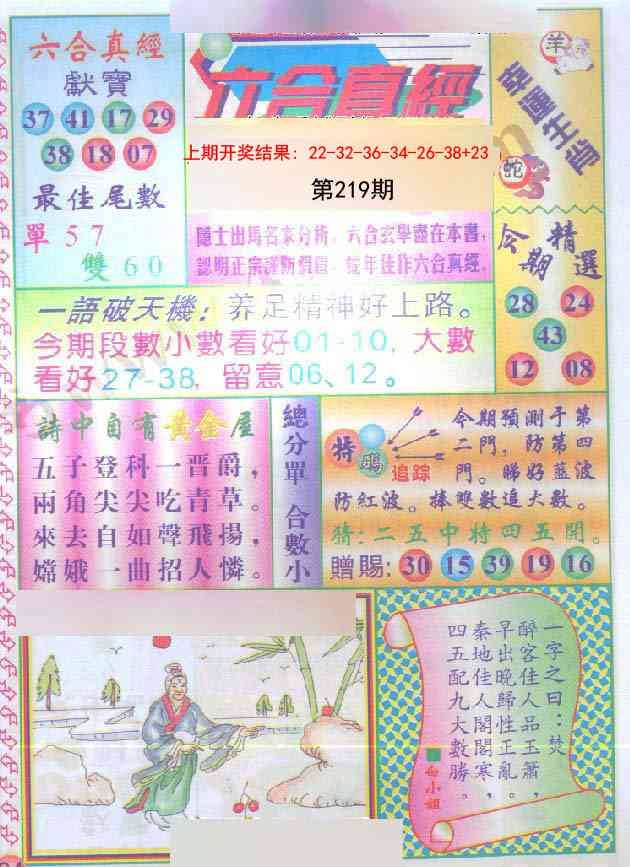 六合真經
獻寶
37 41 17 29
38 18 07
最佳尾數
單57
雙60
六合真經
上期开奖结果: 22-32-36-34-26-38+23
第219期
隱士出馬名家分析，六合玄學盡在本書，
認明正宗謹防假冒，每年佳作六合真經。
羊
幸運生肖
蛇
今期精選
28 24
43
12 08
一語破天機：养足精神好上路。
今期段數小數看好01-10，大數
看好27-38，留意06、12。
詩中自有黃金屋
五子登科一晋爵，
兩角尖尖吃青草。
來去自如聲飛揚，
嫦娥一曲招人憐。
總分單 合數小
特碼
追踪
今期預測于第
二門，防第四
門。睇好藍波
防紅波。捧雙數追大數。
猜:二五中特四五開。
贈賜: 30 15 39 19 16
一字之曰：焚
醉客佳人品玉簫，
早出晚歸性正亂，
秦地佳人閣閣寒。
四五配九大數勝
白小姐